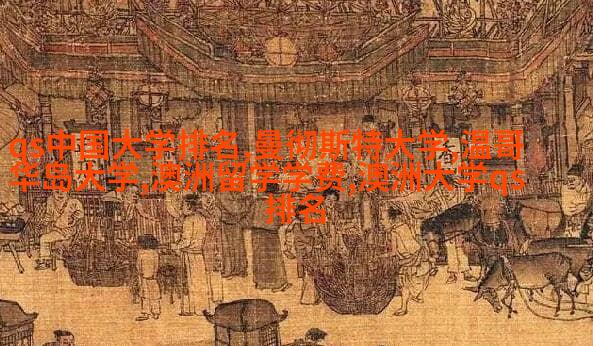 qs中国大学排名,曼彻斯特大学,温哥
华岛大学,澳洲留学学费,澳洲大学qs
排名